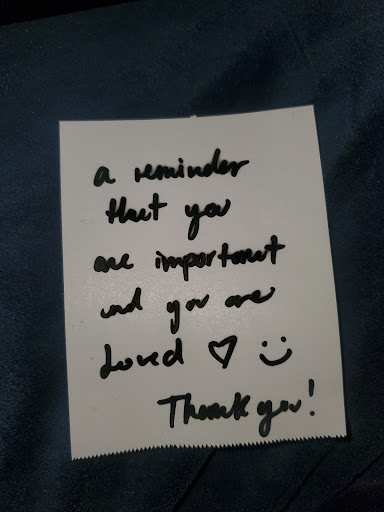 a reminder
that you
are important
and you are
loved ♡ :)
Thank you!